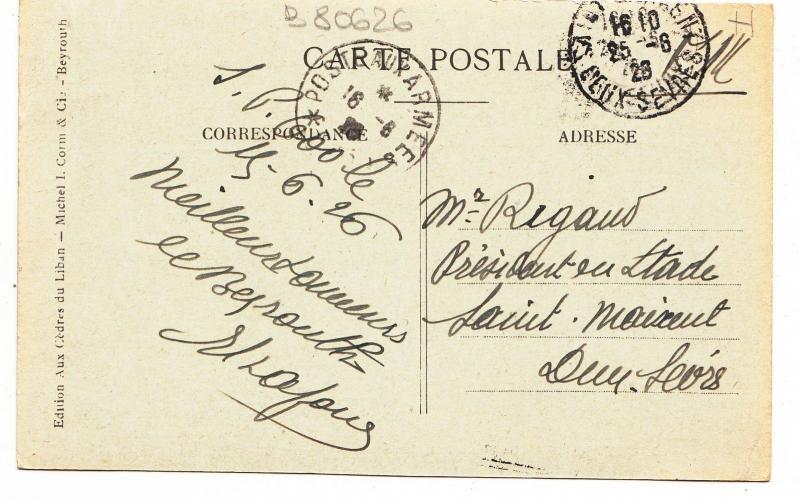 B 80626
CARTE POSTALE
POSTE AUX ARMEES
16 -6
16 10
25 -6
26
DEUX-SEVRES
CORRESPONDANCE
ADRESSE
S. P. 600 le
15-6-26
Meilleurs
de Beyrouth
Mr Rigaud
Président du Stade
Saint-Maixent
Deux-Sèvres
Edition Aux Cèdres du Liban — Michel I. Corm & Cie - Beyrouth